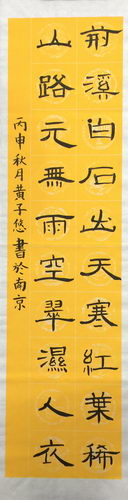 荊溪白石出天寒紅葉稀
山路元無雨空翠濕人衣
丙申秋月黃子悠書於南京